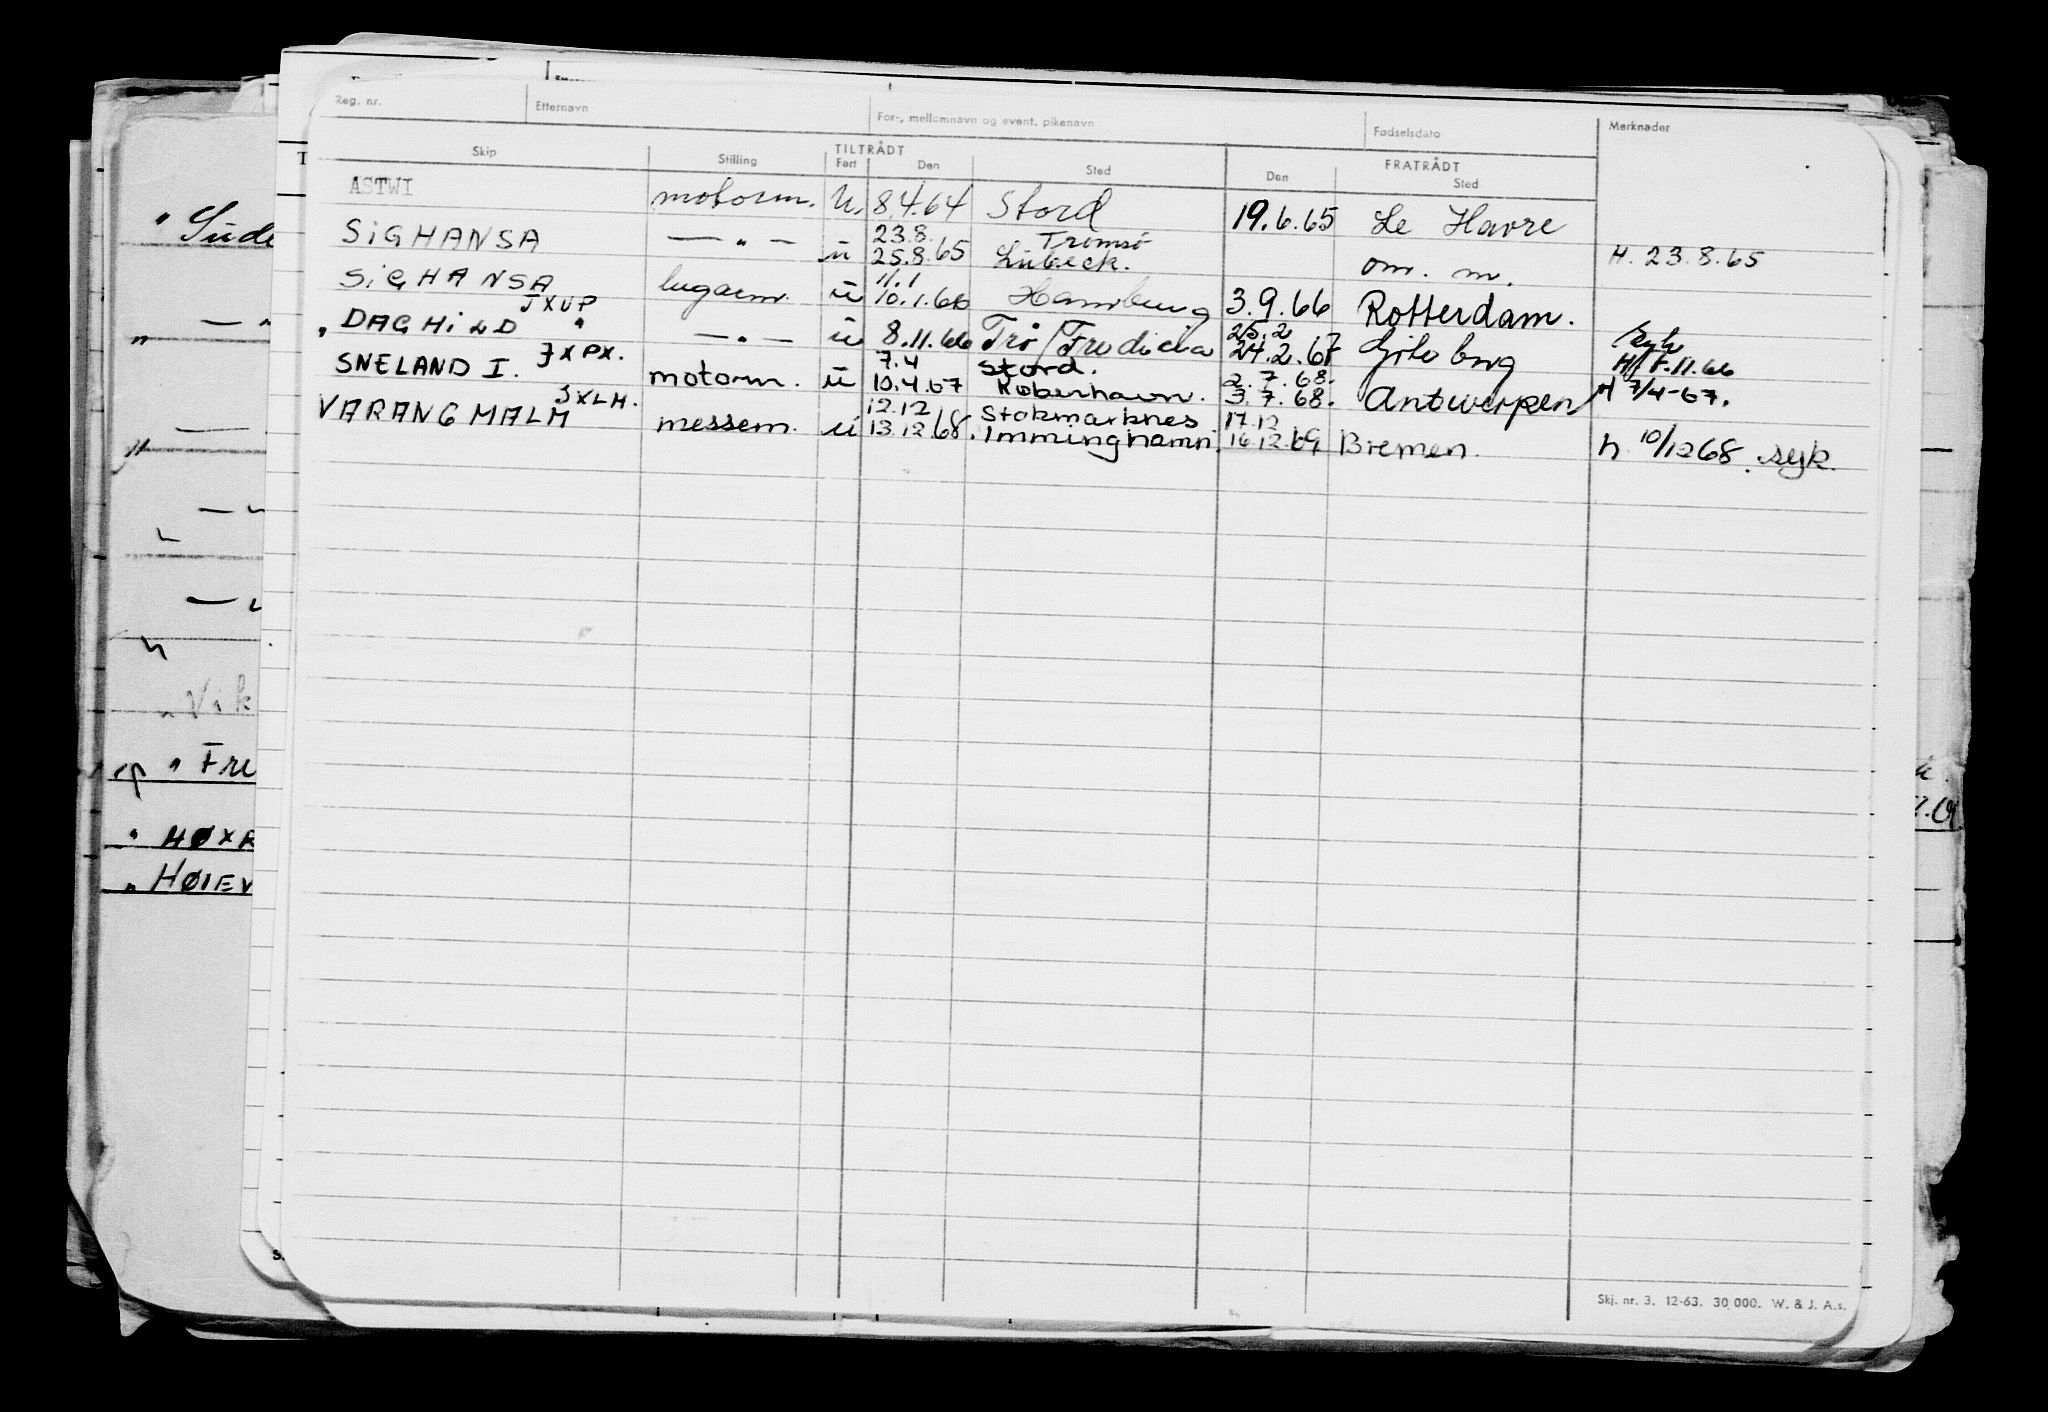 Reg. nr. Etternavn For-, mellomnavn og event. pikenavn Fødselsdato Merknader
Skip Stilling TILTRÅDT Fart Den Sted FRATRÅDT Den Sted
ASTWI motorm. U. 8.4.64 Stord 19.6.65 Le Havre
SIGHANSA — „ — u 23.8. 25.8.65 Tromsø Lübeck. om. m. H. 23.8.65
SIGHANSA JXUP lugarm. u 11.1 10.1.66 Hamburg 3.9.66 Rotterdam.
" DAGHILD " — „ — u 8.11.66 Trø/Fredicia 25.2 24.2.67 Gøteborg syk H/f.11.66
SNELAND I. JXPX. motorm. u 7.4 10.4.67 Stord. København. 2.7.68. 3.7.68. Antwerpen H 7/4-67.
VARANGMALM JXLH. messem. u 12.12 13.12.68. Stokmarknes Imminghamn. 17.12 16.12.69 Bremen. h 10/12 68. syk.
" Sude
Vik
" Fre
" HØXR
" HØIEV
Skj. nr. 3. 12-63. 30 000. W. & J. A.s.